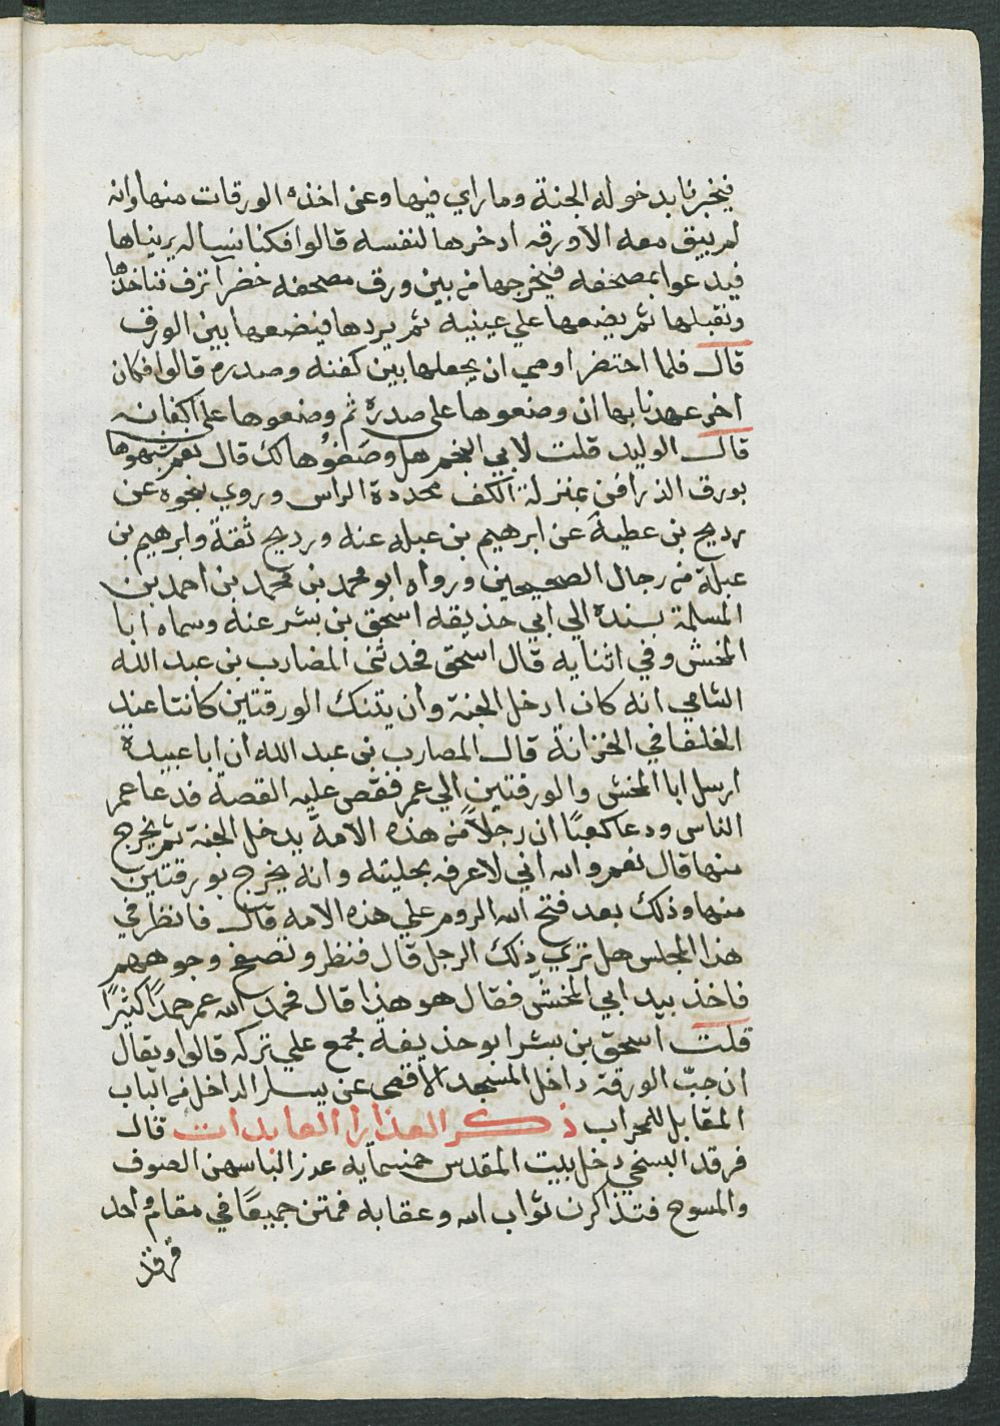 فيخبرنا بدخوله الجنة وما راي فيها وعن اخذه الورقات منها وانه
لم يبق معه الا ورقه ادخرها لنفسه قالوا فكنا نساله يريناها
فيدعوا بمصحفه فيخرجها من بين ورق مصحفه خضرا ترف فناخذها
ونقبلها ثم يضعها علي عينيه ثم يردها فيضعها بين الورق
قال فلما احتضر اوصي ان يجعلها بين كفنه وصدره قالوا فكان
اخر عهدنا بها ان وضعوها على صدره ثم وضعوها على اكفانه
قال الوليد قلت لابي النجم هل وصفوها لك قال نعم شبهوها
بورق الدراقن بمنزلة الكف محددة الراس وروي نحوه عن
رديح بن عطية عن ابرهيم بن عبله عنه ورديح ثقة وابرهيم بن
عبلة من رجال الصحيحين ورواه ابو محمد بن محمد بن احمد بن
المسلمة بسنده الي ابي حذيفه اسحق بن بشر عنه وسماه ابا
المخنش وفي اثنايه قال اسحق فحدثني المضارب بن عبد الله
الشامي انه كان ادخل الجنة وان يتنك الورقتين كانتا عند
الخلفا في الخزانة قال المصارب بن عبد الله ان ابا عبيدة
ارسل ابا المخنش والورقتين الي عمر فقص عليه القصة فدعا عمر
الناس ودعا كعبًا ان رجلاً من هذه الامة يدخل الجنة ثم يخرج
منها قال نعم والله اني لاعرفه بحليته وانه يخرج بورقتين
منها وذلك بعد فتح الله الروم علي هذه الامه قال فانظر في
هذا المجلس هل تري ذلك الرجل قال فنظر وتصفح وجوههم
فاخذ بيد ابي المخنش فقال هو هذا قال فحمد الله عمر حمدًا كثيرًا
قلت اسحق بن بشر ابو حذيفة مجمع علي تركه قالوا ويقال
ان جبّ الورقة داخل المسجد الاقصى عن يسار الداخل من الباب
المقابل للمحراب ذكر العذارا العابدات قال
فرقد السبخي دخل بيت المقدس خمسمايه عذرا لباسهن الصوف
والمسوح فتذاكرن ثواب الله وعقابه فمتن جميعًا في مقام واحد